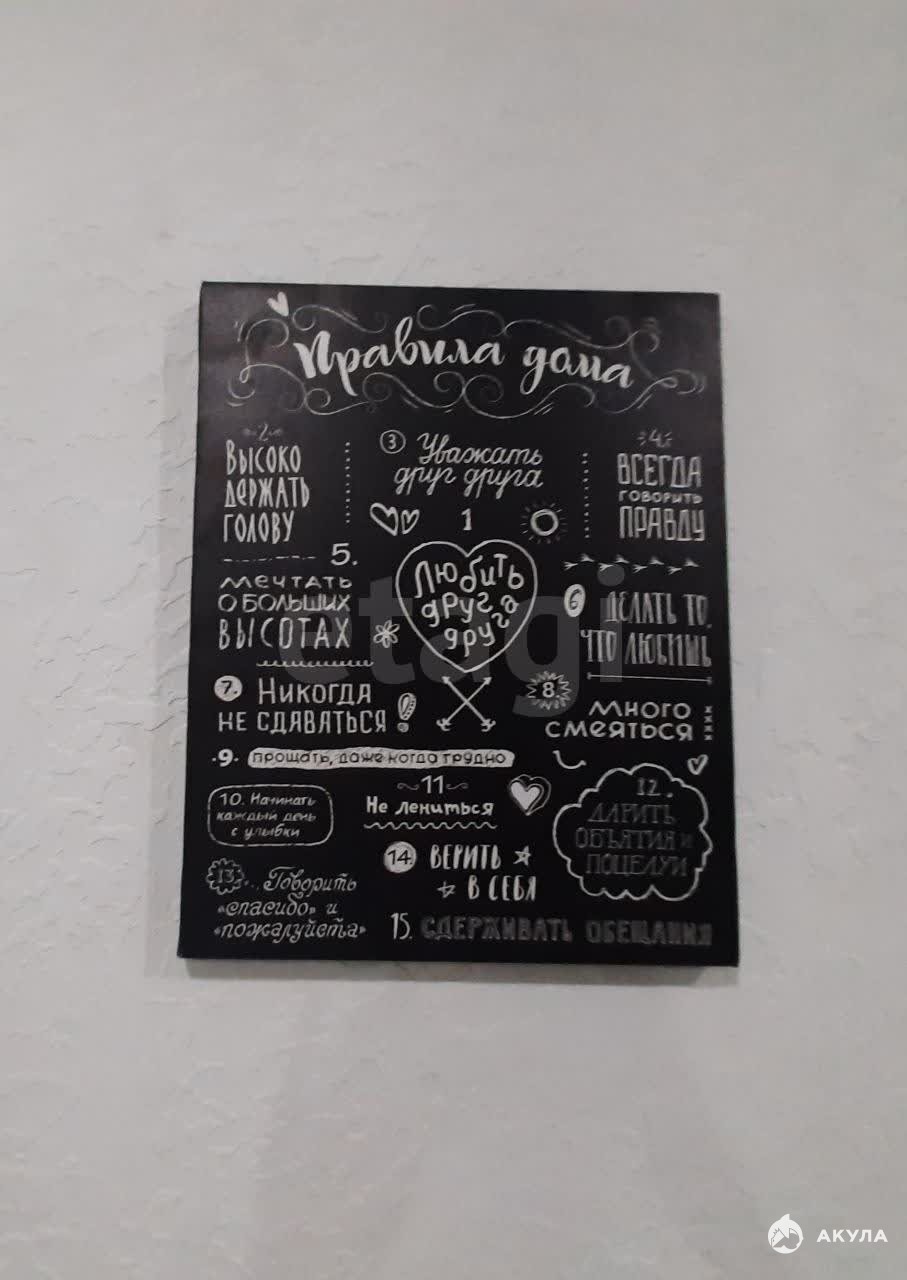 Правила дома
2
Высоко
держать
голову
3 Уважать
друг друга
4
Всегда
говорить
правду
1
Любить
друг
друга
5.
мечтать
о больших
высотах
6 Делать то,
что любишь
7. Никогда
не сдаваться!
8.
много
смеяться
9. прощать, даже когда трудно
10. Начинать
каждый день
с улыбки
11
Не лениться
12.
Дарить
объятия и
поцелуи
13... Говорить
«спасибо» и
«пожалуйста»
14. Верить
в себя
15. Сдерживать обещания
etagi
АКУЛА